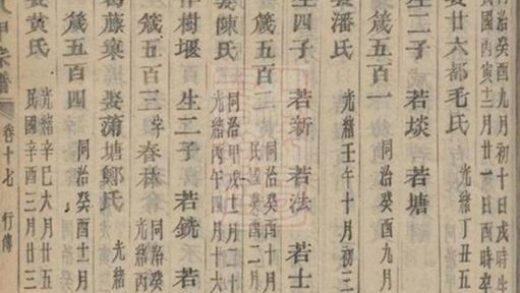 癸酉九月初十日戌時生
國丙寅十二月廿一日酉時卒
娶廿六都毛氏 光緒丁丑五
生二子 若埮 若塘
葴五百一 同治癸酉九月
娶潘氏 光緒壬午十月初三
生四子 若新 若法 若士
葴五百二 同治癸酉十月
二月
娶陳氏 同治甲戌十二月十
光緒丙午四月十六
作樹堰 生二子 若銑 若
葴五百三 字春 同治癸
光緒丙
葛藤 娶蒲塘鄭氏 光緒
葴五百四 同治癸酉十一月
娶黃氏 光緒辛巳六月廿五
民國辛酉三月廿三
宗譜 卷十七 行傳